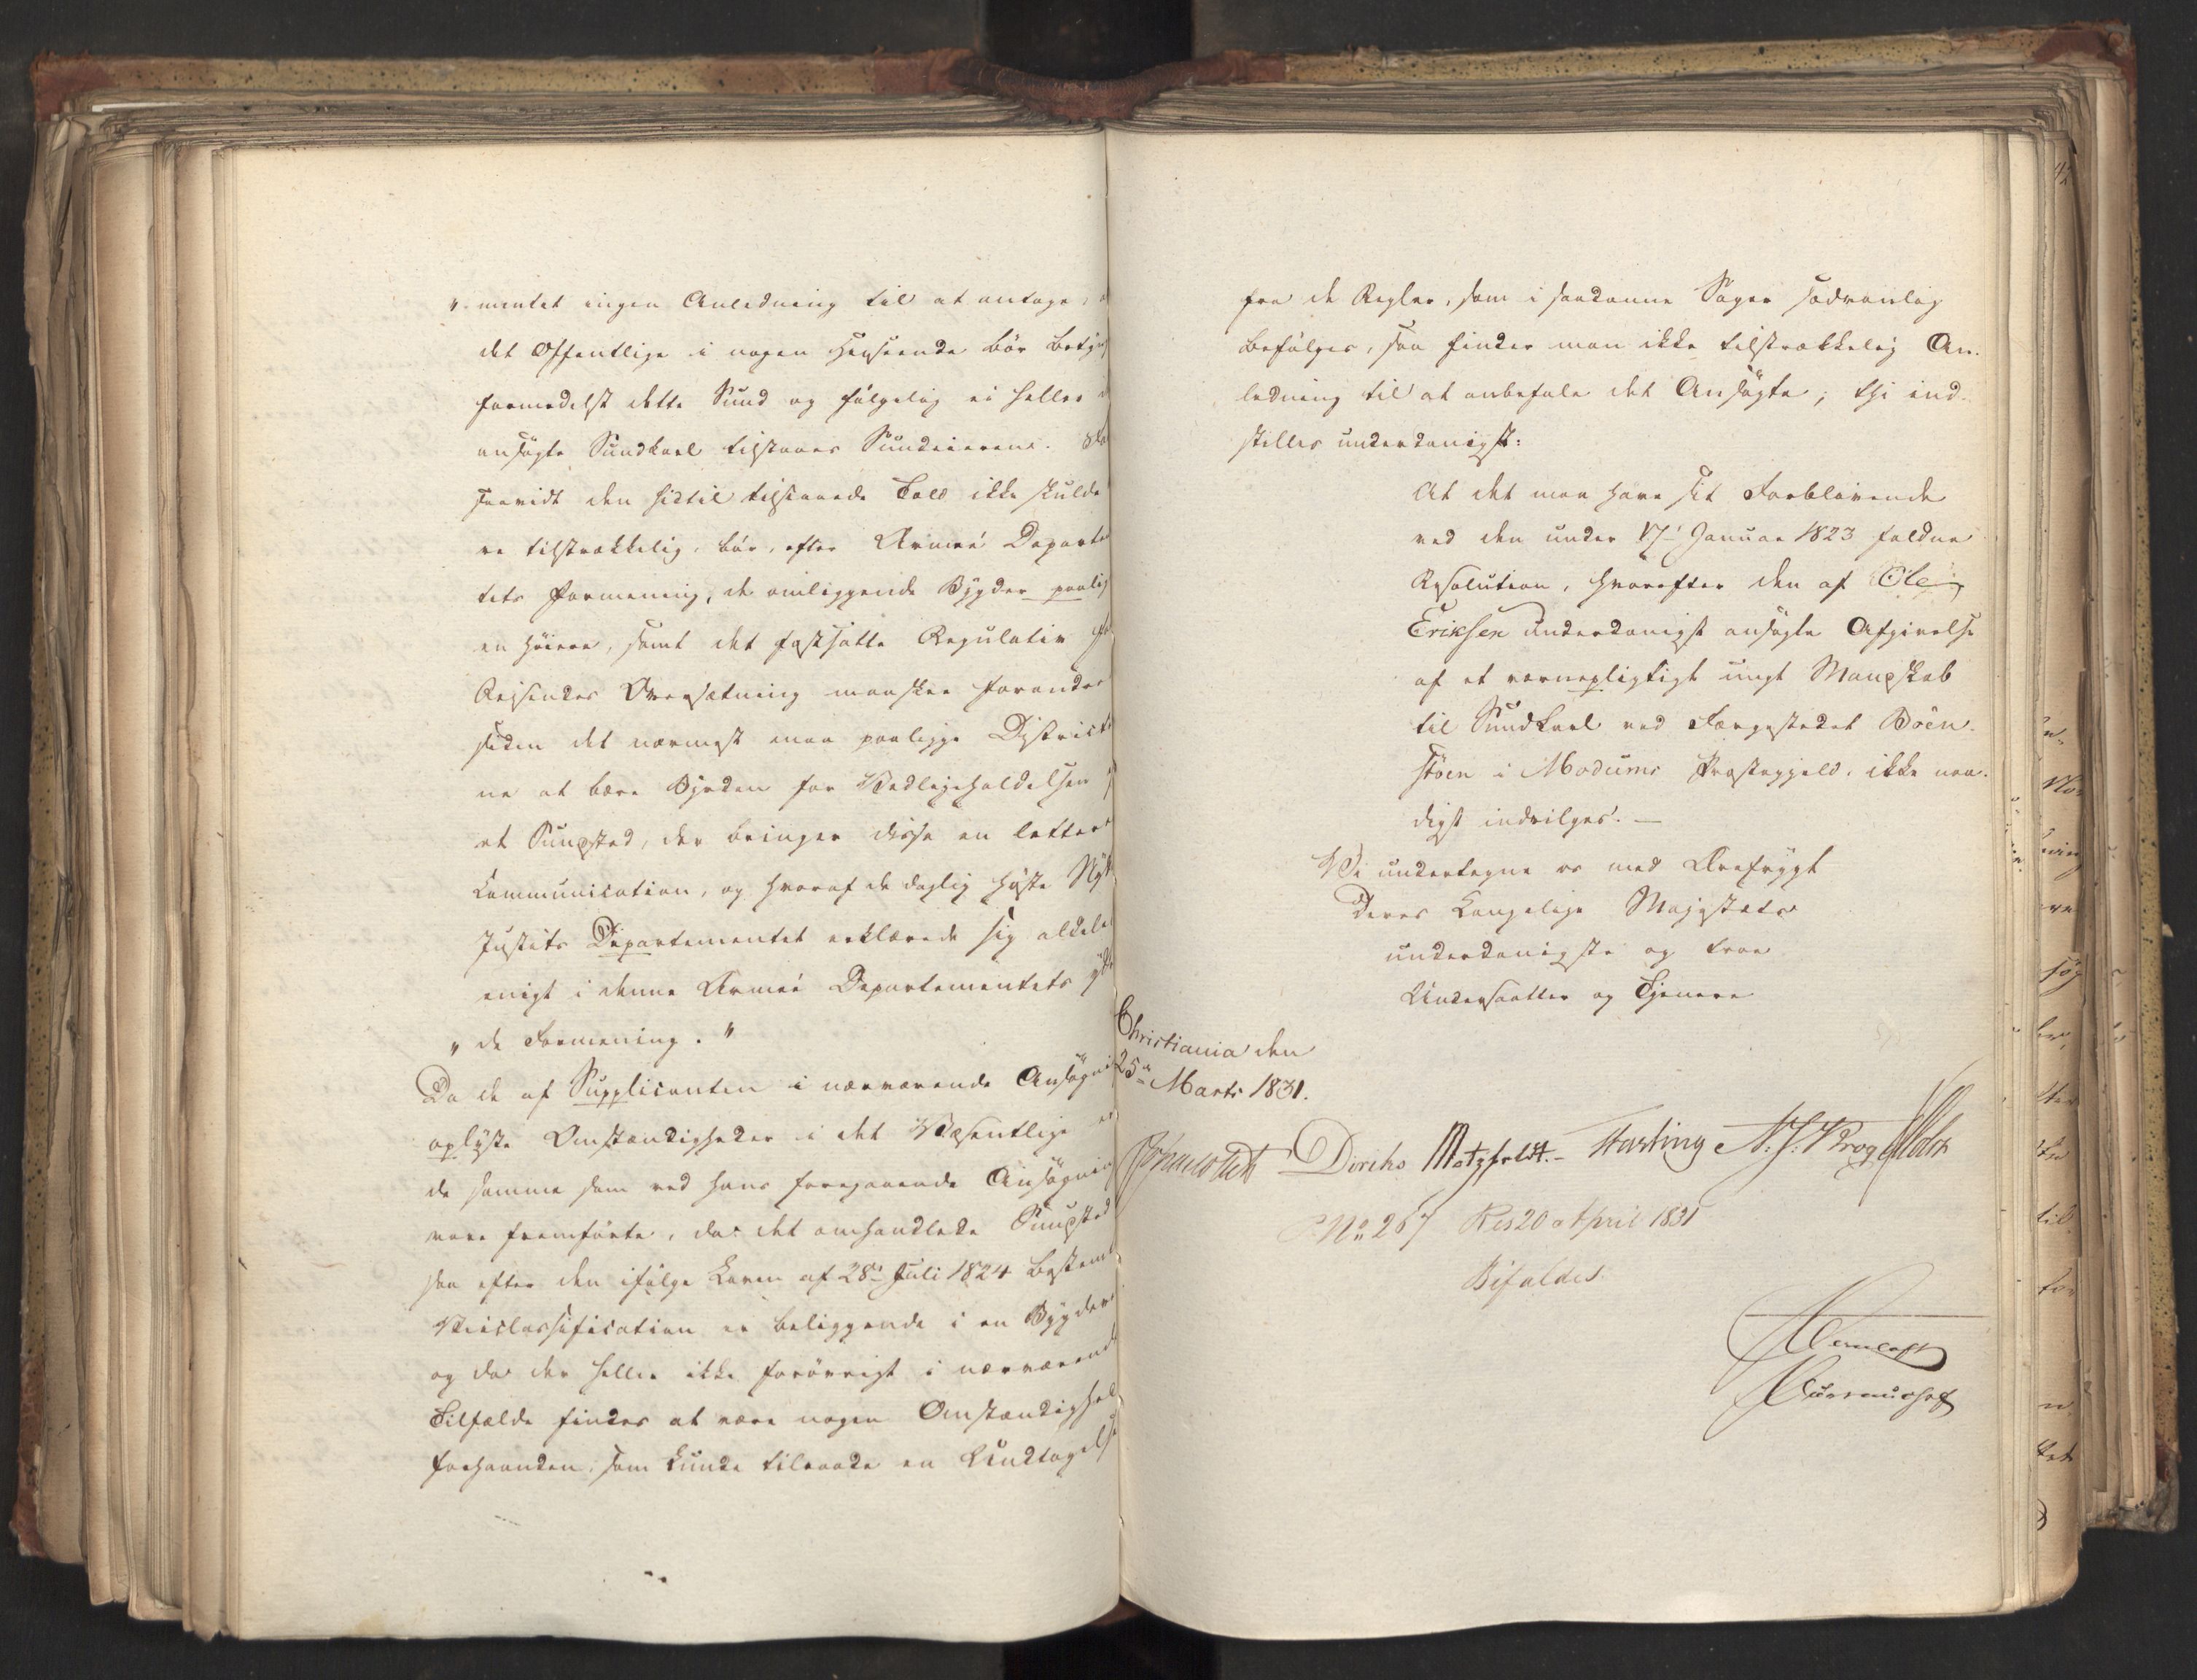 "mentet ingen Anledning til at antage,
det Offentlige i nogen Henseende bør
formedelst dette Sund og følgelig ei heller
ansøgte Sundkarl tilstaaes Sundeierene.
saavidt den hidtil tilstaaede Told ikke skulde
re tilstrækkelig, bør, efter Armeé Departe
tets Formening, de omliggende Bygder paalig
en høiere, samt det fastsatte Regulativ
Reisendes Oversætning maaskee forandres
siden det nærmest maa paaligge District
ne at bære Byrden for Vedligeholdelsen
et Sundsted, der bringer disse en lettere
Communication, og hvoraf de daglig høste
Justits Departementet erklærede sig aldeles
enigt i denne Armeé Departementets
"de Formening."
Da de af Supplicanten i nærværende Ansøgni
oplyste Omstændigheder i det Væsentlige
de samme som ved hans foregaaende Ansøgning
vare fremførte, da det omhandlede Sundsted
saa efter den ifølge Loven af 28de Juli 1824 bestemt
Veiclassification er beliggende i en Bygdevei
og da der heller ikke forøvrigt i nærværende
Tilfælde findes at være nogen Omstændighed
forhaanden, som kunde tilraade en Undtagelse
fra de Regler, som i saadanne Sager sædvanlig
befølges, saa finder man ikke tilstrækkelig An-
ledning til at anbefale det Ansøgte; thi ind-
stilles underdanigst:
At det maa have sit Forblivende
ved den under 17de Januar 1823 faldne
Resolution, hvorefter den af Ole
Eriksen underdanigst ansøgte Afgivelse
af et værnepligtigt ungt Mandskab
til Sundkarl ved Færgestedet Böen-
støen i Modums Præstegjeld, ikke naa-
digst indvilges. —
Vi undertegne os med Ærefrygt
Deres Kongelige Majestæts
underdanigste og troe
Undersaatter og Tjenere
Christiania den
25de Marts 1831.
Diriks Motzfeldt.- Fasting N. J. Krog Holst
No 267 Res 20 April 1831
Bifaldes.